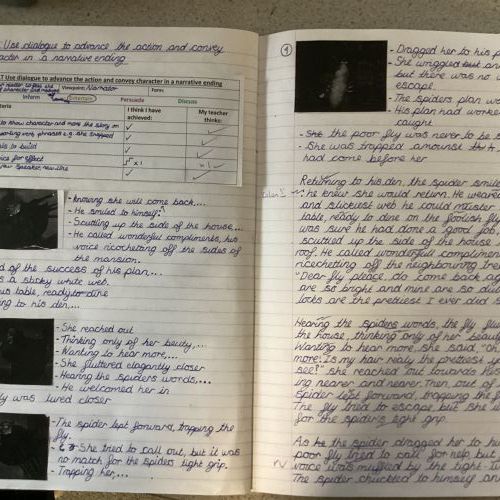 Use dialogue to advance the action and convey
acter in a narrative ending
T Use dialogue to advance the action and convey character in a narrative ending
Viewpoint: Narrator
Form:
Inform
Entertain
Persuade
Discuss
teria
I think I have achieved:
My teacher thinks:
to show character and move the story on
to build
for effect
new speaker, new line
- Knowing she will come back....
- He smiled to himself.
- Scuttling up the side of the house...
- He called wonderful compliments, his
voice ricocheting off the sides of
the mansion.
d of the success of his plan....
s a sticky white web.
his table, ready to dine
ing to his den,...
- She reached out
- Thinking only of her beuty,...
- Wanting to hear more,...
- She fluttered elegantly closer
- Hearing the spiders words,...
- He welcomed her in
ly was lured closer
- The spider lept forward, trapping the
fly.
- She tried to call out, but it was
no match for the spiders tight grip.
- Trapping her,...
4
- Dragged her to his
- She wriggled
but there was no
escape.
- The spiders plan
- His plan had worked
caught
- She the poor fly was never to be
- She was trapped amounst
had come before her
Returning to his den, the spider smile
he knew she would return. He weaved
and stickiest web he could muster
table, ready to dine on the foolish fly
was sure he had done a good job,
scuttled up the side of the house
roof. He called wonderful complimen
ricochetting off the neighbouring
"Dear fly please, do come back
are so bright and mine are so
locks are the prettiest I ever did
Hearing the spiders words, the fly
the house, thinking only of her beauty
Wanting to hear more, she said, "Oh
more. Is my hair realy the prettiest
see?" she reached out towards
ing nearer and nearer. Then out of
spider lept forward, trapping the
The fly tried to escape but she
for the spider's tight grip.
As he the spider dragged her to his
poor fly tried to call for help, but
voice was muffled by the tight
The spider chuckled to himself an